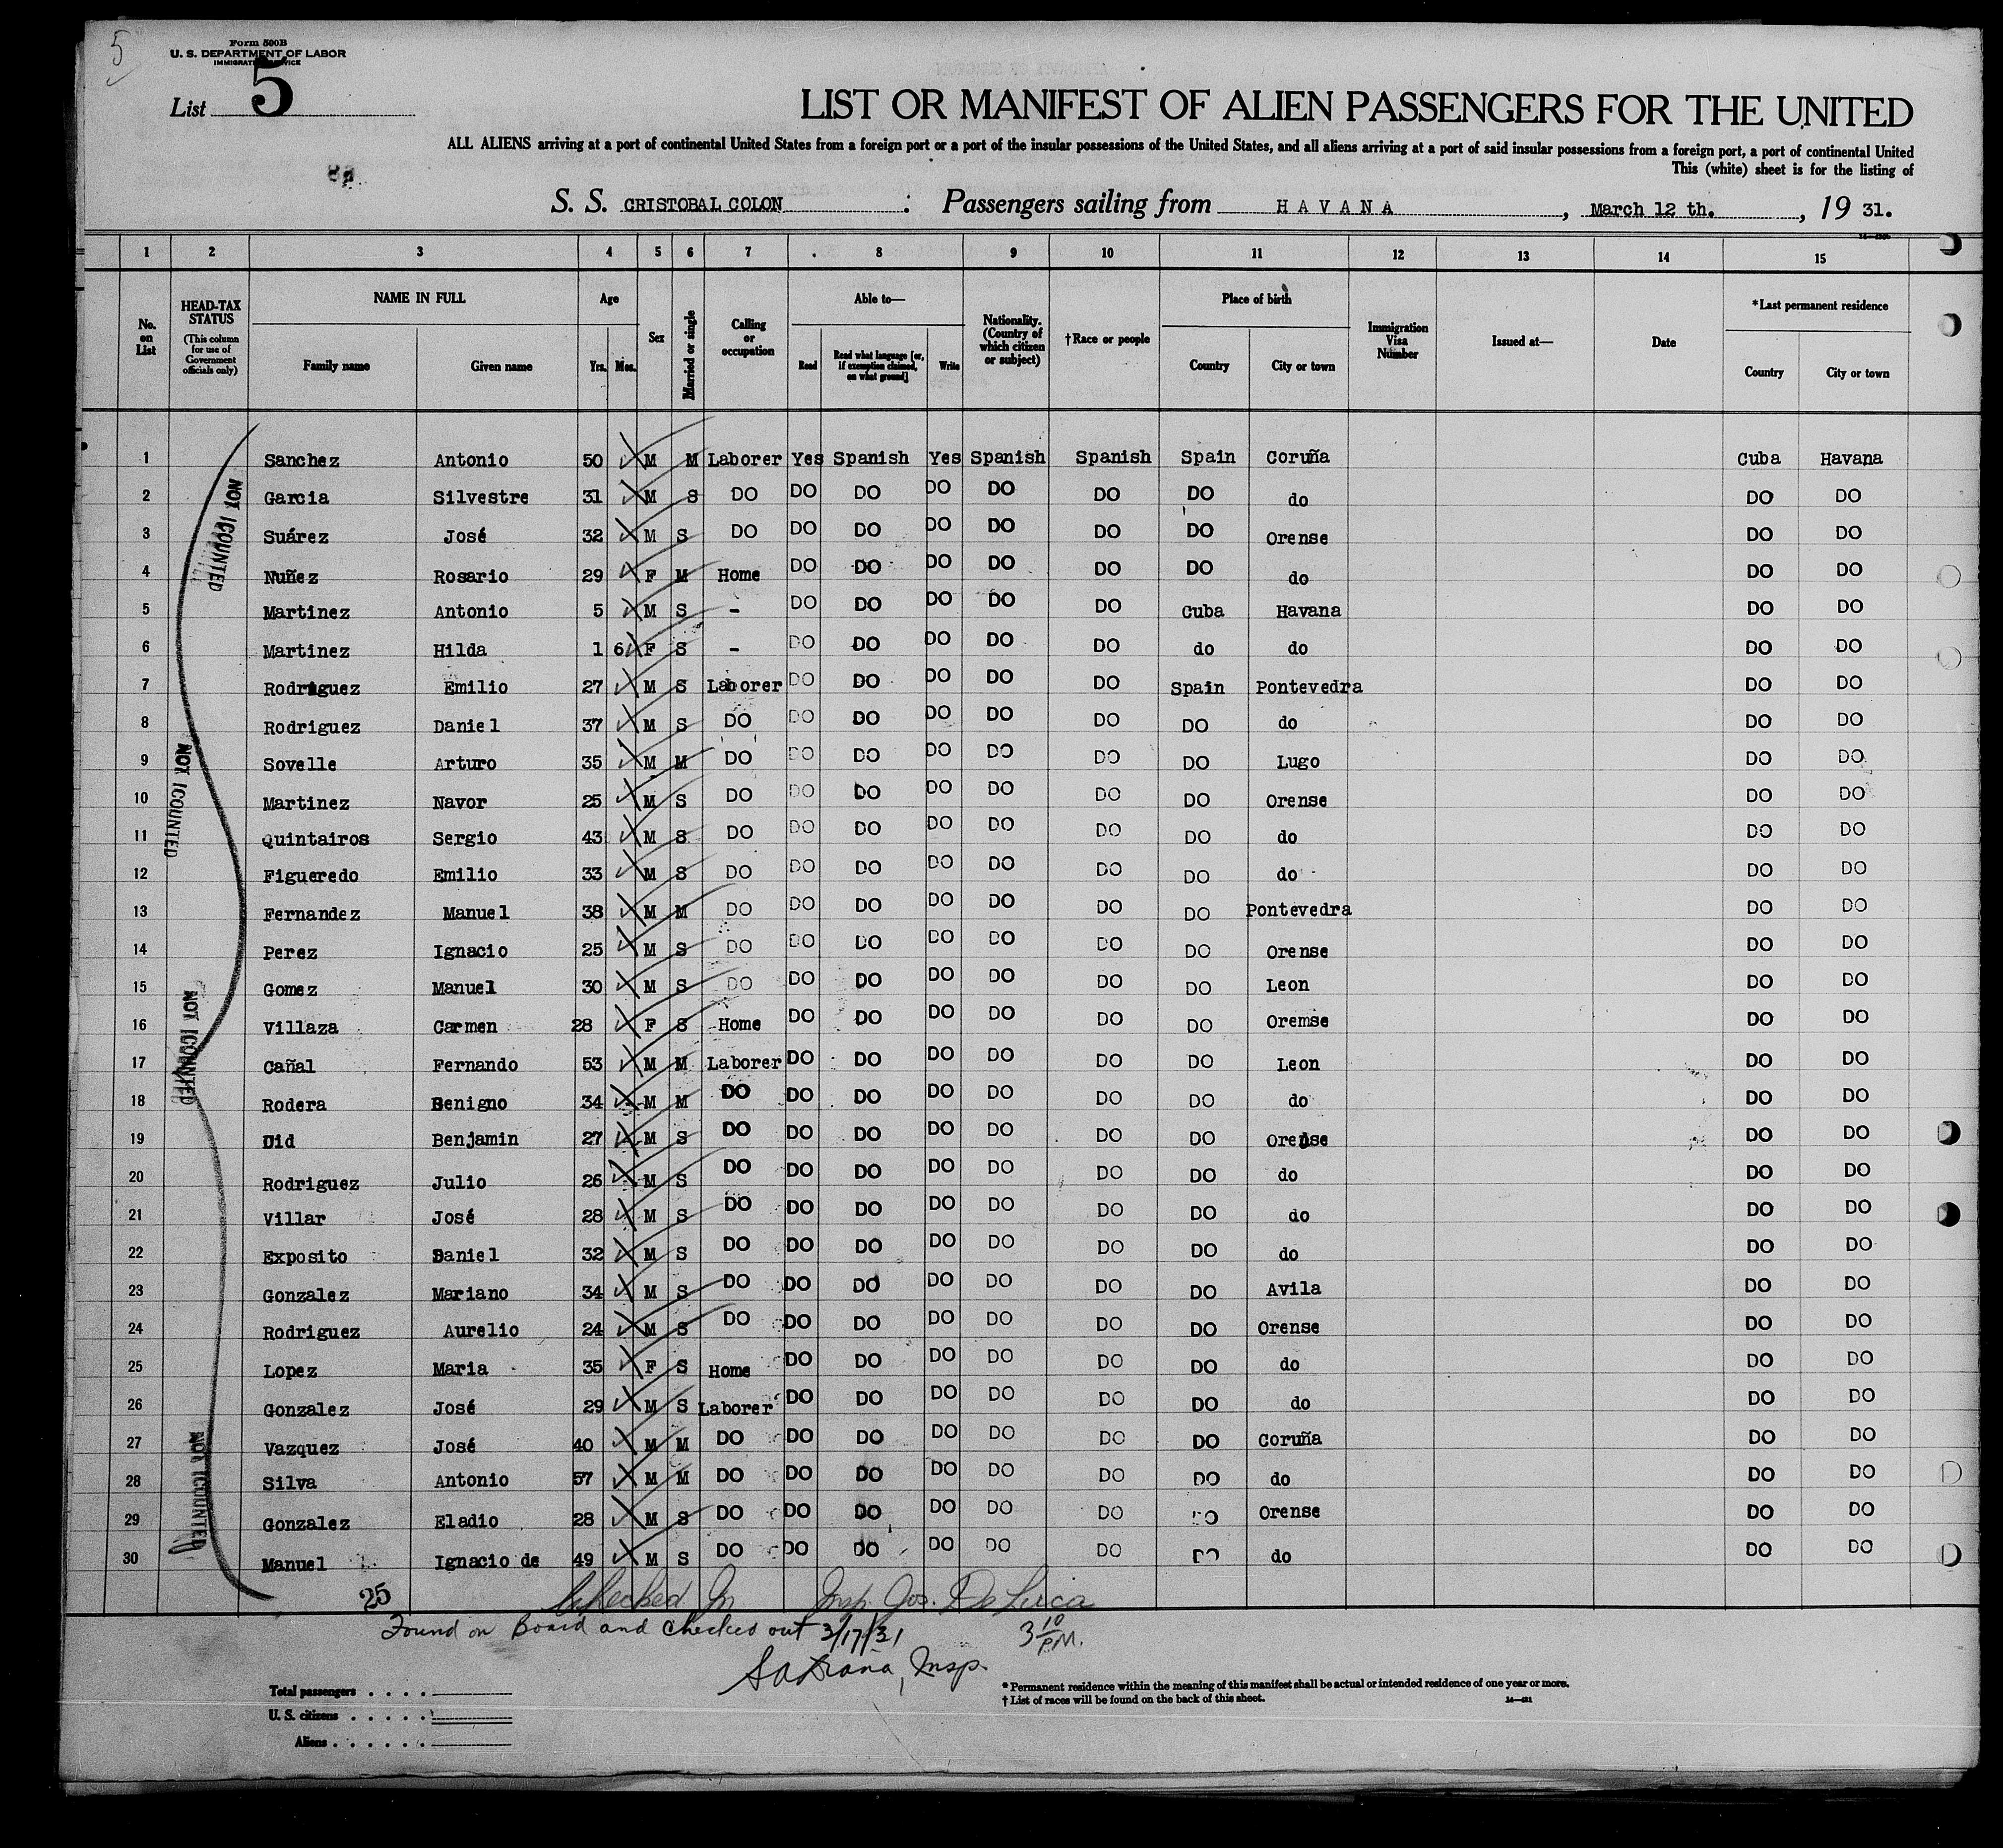 5
Form 500B
U. S. DEPARTMENT OF LABOR
IMMIGRATION SERVICE
List 5
LIST OR MANIFEST OF ALIEN PASSENGERS FOR THE UNITED
ALL ALIENS arriving at a port of continental United States from a foreign port or a port of the insular possessions of the United States, and all aliens arriving at a port of said insular possessions from a foreign port, a port of continental United
This (white) sheet is for the listing of
S. S. CRISTOBAL COLON : Passengers sailing from HAVANA , March 12 th. , 19 31.
1 2 3 4 5 6 7 8 9 10 11 12 13 14 15
No. on List HEAD-TAX STATUS (This column for use of Government officials only) NAME IN FULL Family name Given name Age Yrs. Mos. Sex Married or single Calling or occupation Able to— Read Read what language [or, if exemption claimed, on what ground] Write Nationality. (Country of which citizen or subject) †Race or people Place of birth Country City or town Immigration Visa Number Issued at— Date *Last permanent residence Country City or town
1 Sanchez Antonio 50 M M Laborer Yes Spanish Yes Spanish Spanish Spain Coruña Cuba Havana
2 Garcia Silvestre 31 M S DO DO DO DO DO DO DO do DO DO
3 Suárez José 32 M S DO DO DO DO DO DO DO Orense DO DO
4 Nuñez Rosario 29 F M Home DO DO DO DO DO DO do DO DO
5 Martinez Antonio 5 M S - DO DO DO DO DO Cuba Havana DO DO
6 Martinez Hilda 1 6 F S - DO DO DO DO DO do do DO DO
7 Rodriguez Emilio 27 M S Laborer DO DO DO DO DO Spain Pontevedra DO DO
8 Rodriguez Daniel 37 M S DO DO DO DO DO DO DO do DO DO
9 Sovelle Arturo 35 M M DO DO DO DO DO DO DO Lugo DO DO
10 Martinez Navor 25 M S DO DO DO DO DO DO DO Orense DO DO
11 Quintairos Sergio 43 M S DO DO DO DO DO DO DO do DO DO
12 Figueredo Emilio 33 M S DO DO DO DO DO DO DO do DO DO
13 Fernandez Manuel 38 M M DO DO DO DO DO DO DO Pontevedra DO DO
14 Perez Ignacio 25 M S DO DO DO DO DO DO DO Orense DO DO
15 Gomez Manuel 30 M S DO DO DO DO DO DO DO Leon DO DO
16 Villaza Carmen 28 F S Home DO DO DO DO DO DO Oremse DO DO
17 Cañal Fernando 53 M M Laborer DO DO DO DO DO DO Leon DO DO
18 Rodera Benigno 34 M M DO DO DO DO DO DO DO do DO DO
19 Did Benjamin 27 M S DO DO DO DO DO DO DO Orense DO DO
20 Rodriguez Julio 26 M S DO DO DO DO DO DO DO do DO DO
21 Villar José 28 M S DO DO DO DO DO DO DO do DO DO
22 Exposito Daniel 32 M S DO DO DO DO DO DO DO do DO DO
23 Gonzalez Mariano 34 M S DO DO DO DO DO DO DO Avila DO DO
24 Rodriguez Aurelio 24 M S DO DO DO DO DO DO DO Orense DO DO
25 Lopez Maria 35 F S Home DO DO DO DO DO DO do DO DO
26 Gonzalez José 29 M S Laborer DO DO DO DO DO DO do DO DO
27 Vazquez José 40 M M DO DO DO DO DO DO DO Coruña DO DO
28 Silva Antonio 57 M M DO DO DO DO DO DO DO do DO DO
29 Gonzalez Eladio 28 M S DO DO DO DO DO DO DO Orense DO DO
30 Manuel Ignacio de 49 M S DO DO DO DO DO DO DO do DO DO
NOT COUNTED
NOT COUNTED
NOT COUNTED
NOT COUNTED
25 Checked In Insp. Jos. De Luca
Found on Board and checked out 3/17/31 3 10 P.M.
Insp.
Total passengers
U. S. citizens
Aliens
* Permanent residence within the meaning of this manifest shall be actual or intended residence of one year or more.
† List of races will be found on the back of this sheet.